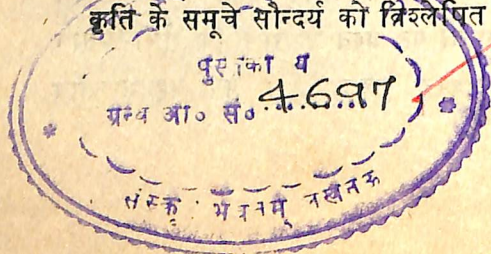 कृति के समूचे सौन्दर्य को विश्लेषित
पुस्तका य
ग्रन्थ आ० सं० 4697
संस्कृ भवनम् लखनऊ